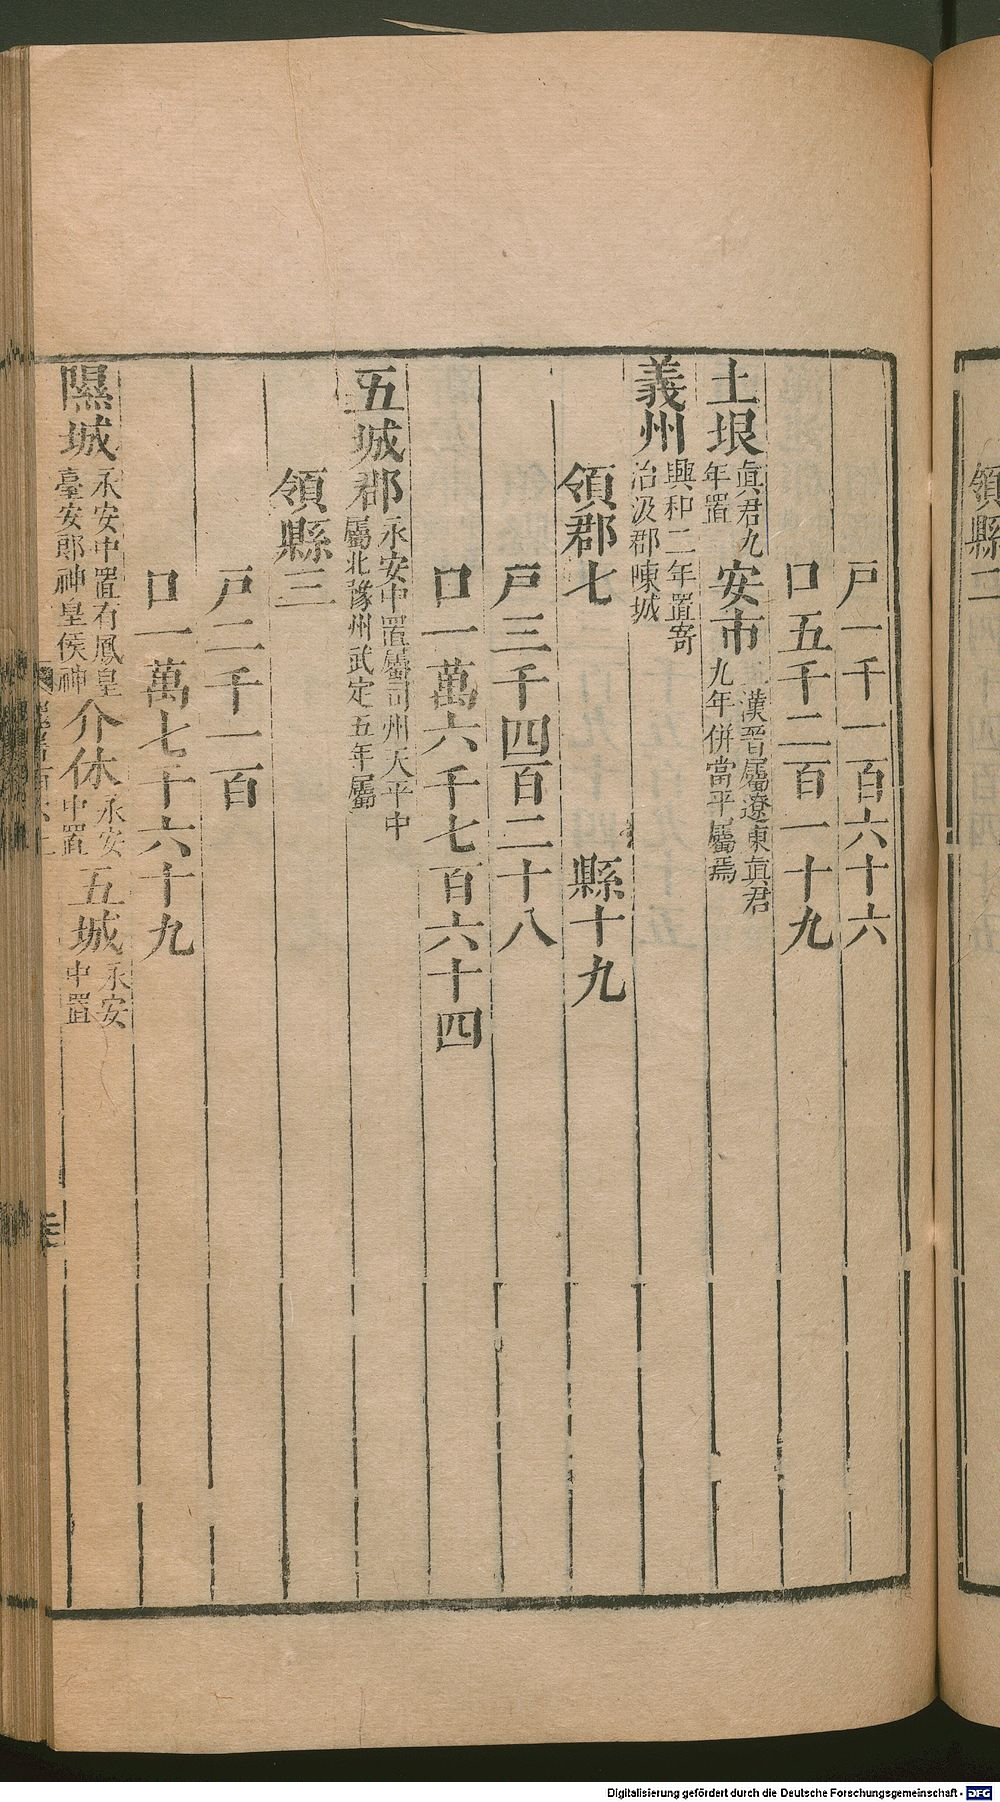 戸一千一百六十六
口五千二百一十九
土垠眞君九年置 安市二漢晉屬遼東眞君九年併當平屬焉
義州興和二年置寄治汲郡陳城
領郡七 縣十九
戸三千四百二十八
口一萬六千七百六十四
五城郡永安中置屬司州天平中屬北豫州武定五年屬
領縣三
戸二千一百
口一萬七千六十九
隰城永安中置有鳳皇臺安郎神皇侯神 介休永安中置 五城永安中置
領縣二
Digitalisierung gefördert durch die Deutsche Forschungsgemeinschaft - DFG